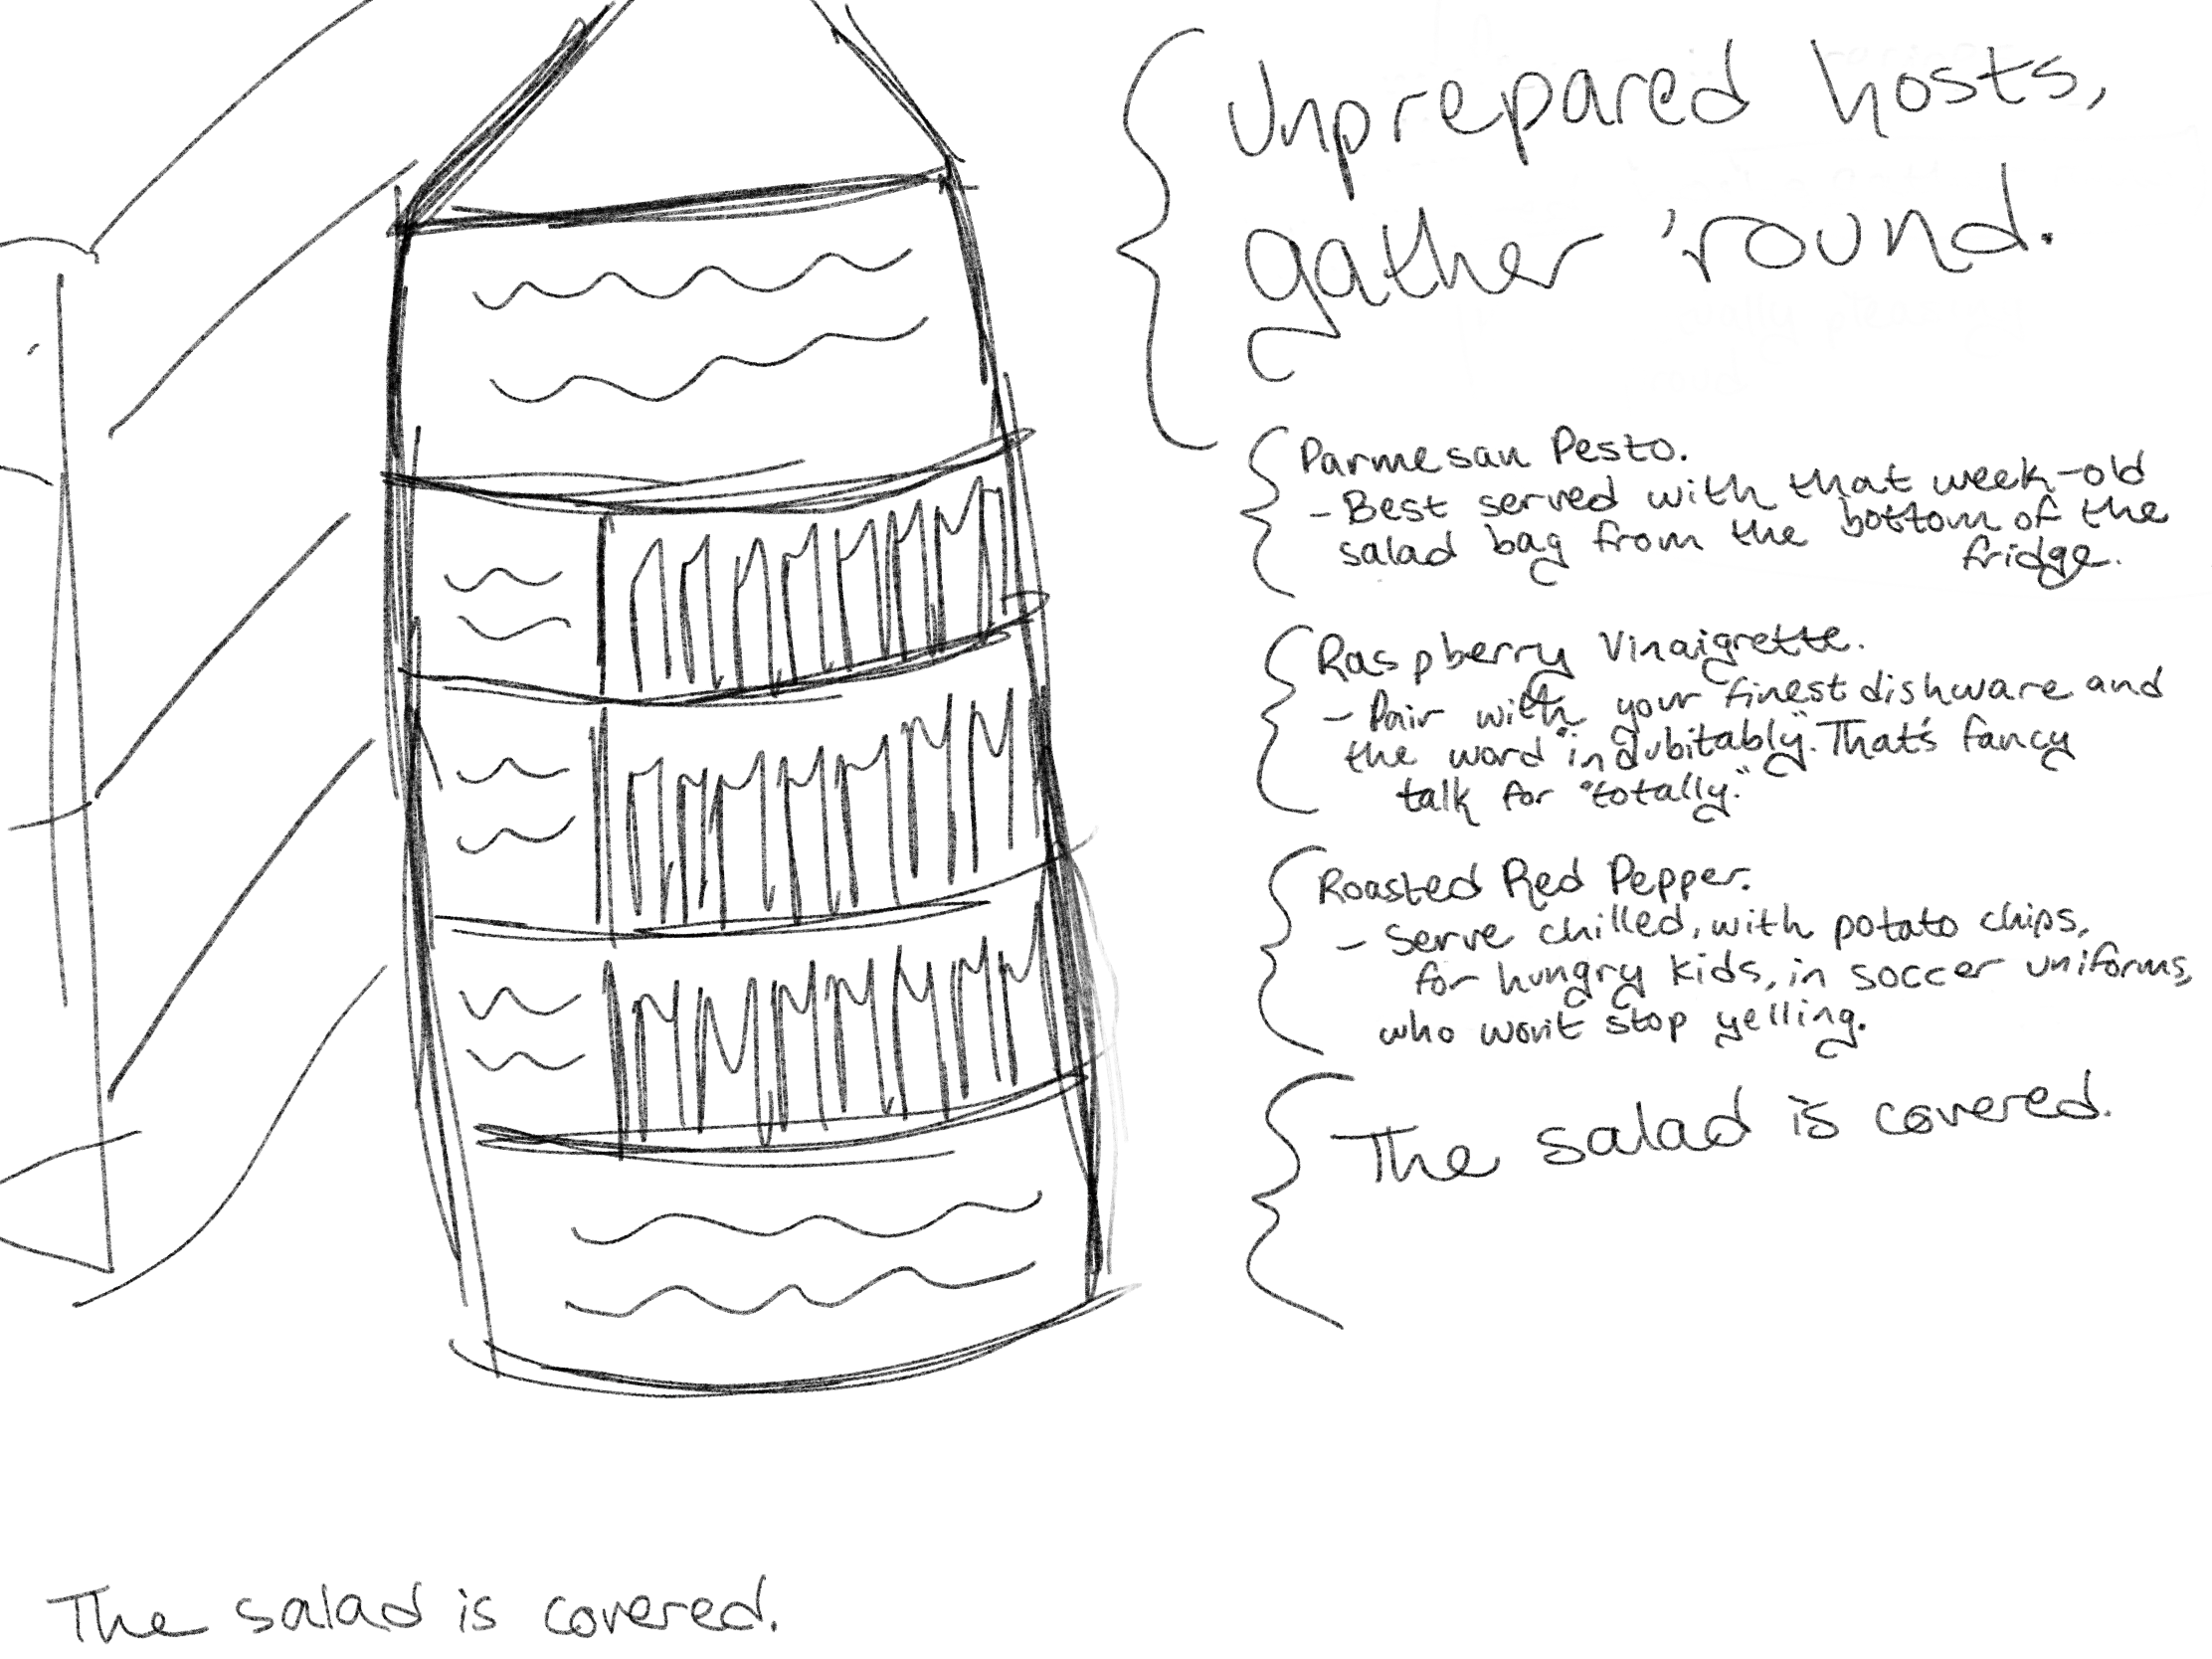 Unprepared hosts,
gather 'round.
Parmesan Pesto.
- Best served with that week-old
salad bag from the bottom of the
fridge.
Raspberry Vinaigrette.
- Pair with your finest dishware and
the word "indubitably". That's fancy
talk for "totally."
Roasted Red Pepper.
- Serve chilled, with potato chips,
for hungry kids, in soccer uniforms,
who won't stop yelling.
The salad is covered.
The salad is covered.